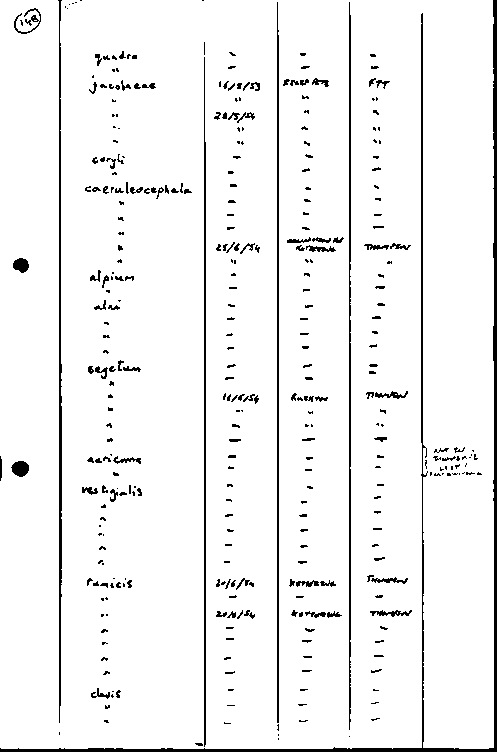 148
quadra — — —
" — — —
jacobaeae 16/5/53 FTT
" " " "
" 28/5/54 " "
" " " "
" " " "
coryli — — —
" — — —
caeruleocephala — — —
" — — —
" — — —
" — — —
" 25/6/54 KETTERING THOMPSON
" " " "
alpium — — —
" — — —
alni — — —
" — — —
" — — —
" — — —
segetum — — —
" — — —
" 16/6/54 RUSHTON THOMPSON
" " " "
" " " "
" — — —
— — — NOT IN
" — — —
vestigialis — — —
" — — —
" — — —
" — — —
" — — —
" — — —
rumicis 20/6/54 KETTERING THOMPSON
" — — —
" 20/6/54 KETTERING THOMPSON
" — — "
" — — —
" — — —
" — — —
clavis — — —
" — — —
" — — —